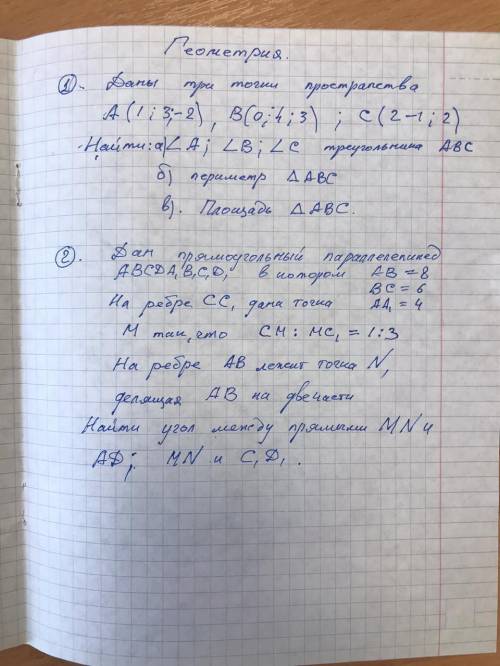 Геометрия.
1). Даны три точки пространства
A(1; 3;-2), B(0; 4; 3) ; C(2-1; 2)
Найти: а) ∠A; ∠B; ∠C треугольника ABC
б) периметр △ABC
в). Площадь △ABC.
2). Дан прямоугольный параллелепипед
ABCDA₁B₁C₁D₁ в котором AB = 8
BC = 6
На ребре CC₁ дана точка AA₁ = 4
M так, что CM : MC₁ = 1:3
На ребре AB лежит точка N,
делящая AB на двечасти
Найти угол между прямыми MN и
AD; MN и C₁D₁.